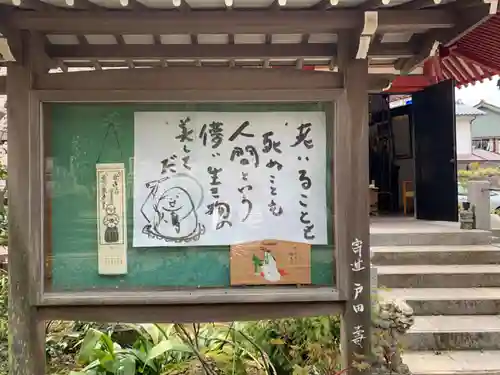 老いることも
死ぬことも
人間という
儚い生き物の
美しさだ
寄進 戸田 寿